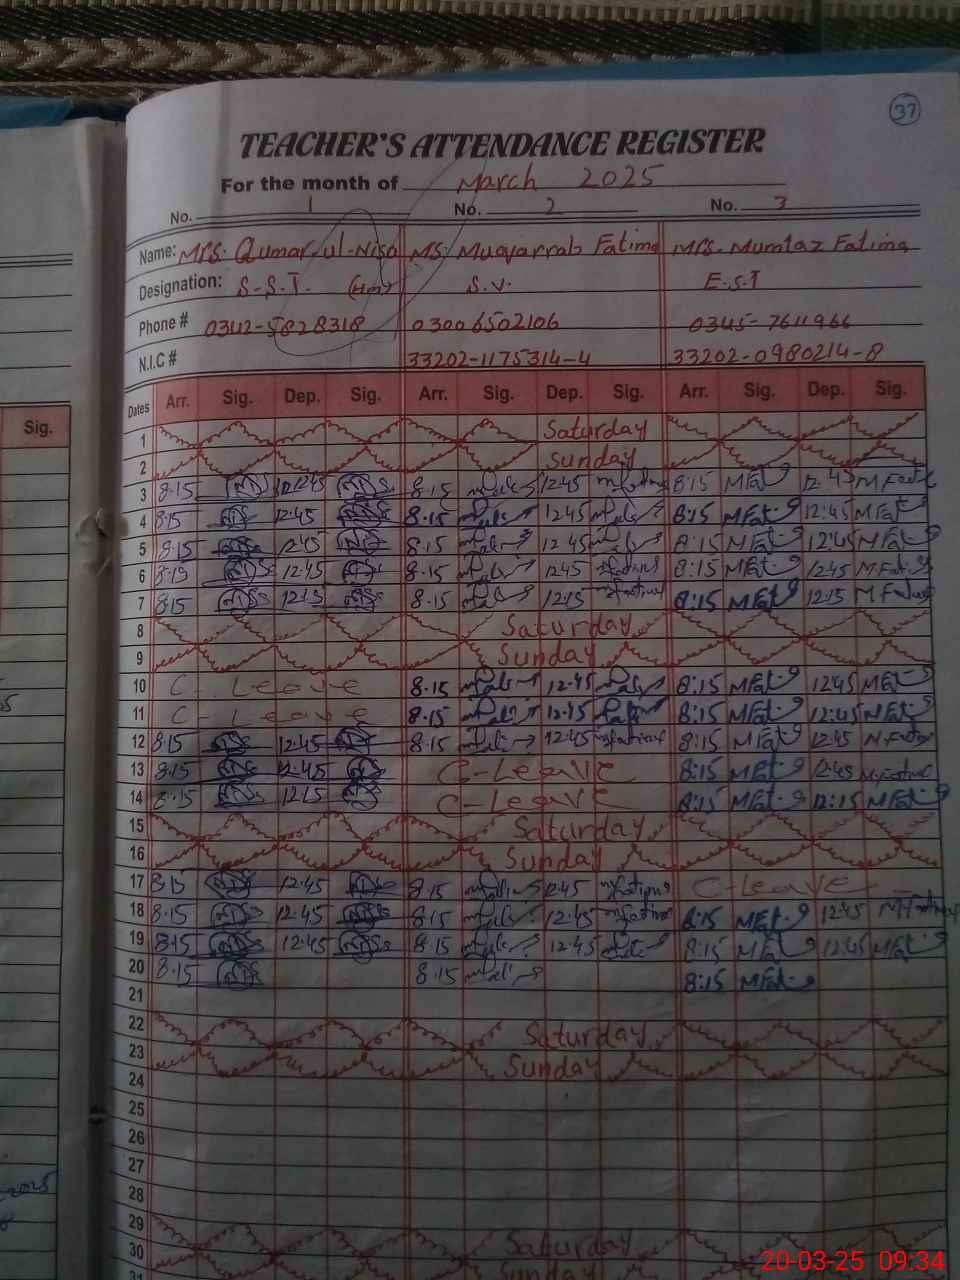 37
TEACHER'S ATTENDANCE REGISTER
For the month of March 2025
No. 1 No. 2 No. 3
Name: Mrs. Qumar-ul-Nisa Ms. Muqarrab Fatima Mrs. Mumtaz Fatima
Designation: S.S.T. (Hm) S.V. E.S.T
Phone # 0342-5828318 03006502106 0345-7611966
N.I.C # 33202-1175314-4 33202-0980214-8
Sig. Dates Arr. Sig. Dep. Sig. Arr. Sig. Dep. Sig. Arr. Sig. Dep. Sig.
1 Saturday
2 Sunday
3 8:15 12:45 8.15 12:45 8:15 MFat 12:45
4 8:15 12:45 8.15 12:45 8:15 MFat 12:45 MFat
5 8:15 12:45 8.15 12:45 8:15 MFat 12:45 MFat
6 8:15 12:45 8.15 12:45 8:15 MFat 12:45
7 8:15 12:15 8.15 12:15 8:15 MFat 12:15
8 Saturday
9 Sunday
10 C-Leave 8.15 12:45 8:15 MFat 12:45 MFat
11 C-Leave 8.15 12:15 8:15 MFat 12:45 MFat
12 8:15 12:45 8.15 12:45 8:15 MFat 12:45
13 8:15 12:45 C-Leave 8:15 MFat 12:45
14 8:15 12:15 C-Leave 8:15 MFat 12:15 MFat
15 Saturday
16 Sunday
17 8:15 12:45 8.15 12:45 C-Leave
18 8:15 12:45 8.15 12:45 8:15 MFat 12:45
19 8:15 12:45 8.15 12:45 8:15 MFat 12:45 MFat
20 8:15 8.15 8:15 MFat
21
22 Saturday
23 Sunday
24
25
26
27
28
29 Saturday
30 Sunday
31
20-03-25 09:34